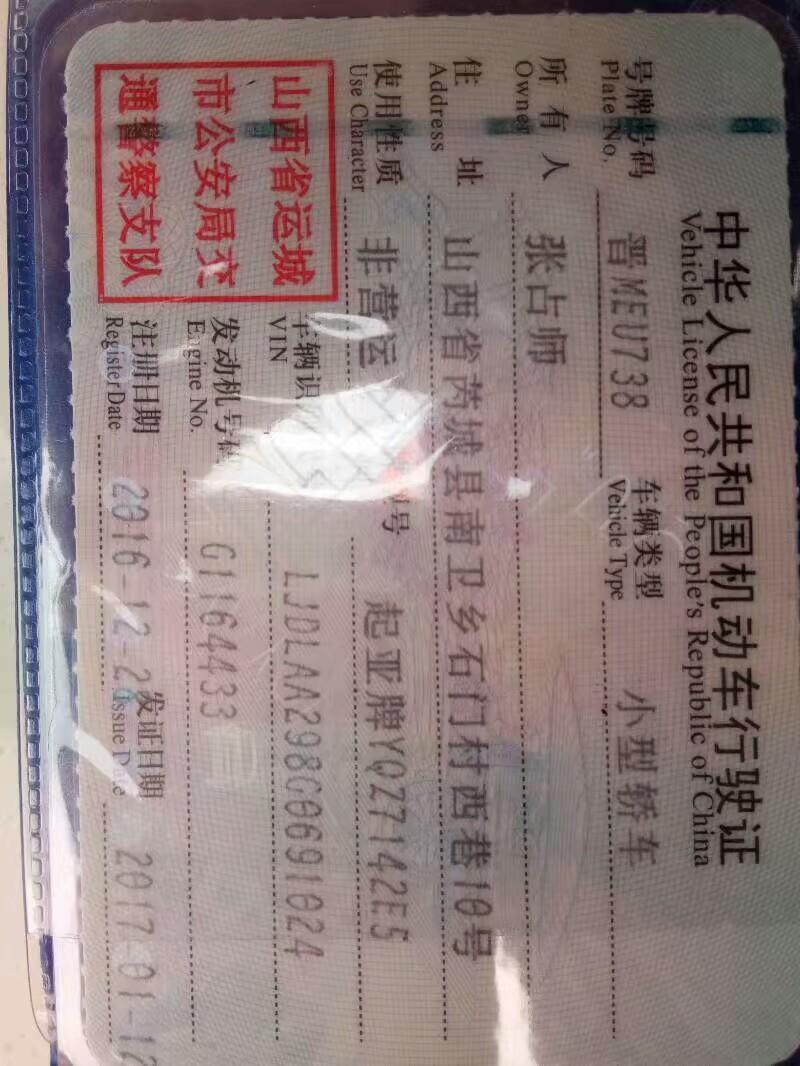 中华人民共和国机动车行驶证
Vehicle License of the People's Republic of China
号牌号码 晋MEU738 车辆类型 小型轿车
Plate No. Vehicle Type
所有人 张占师
Owner
住址 山西省芮城县南卫乡石门村西巷10号
Address
使用性质 非营运 号 起亚牌YQZ7142E5
Use Character
山西省运城
市公安局交
通警察支队
车辆识 LJDLAA298G0691024
VIN
发动机号码 G1164433
Engine No.
注册日期 2016-12-2 发证日期 2017-01-12
Register Date Issue Date